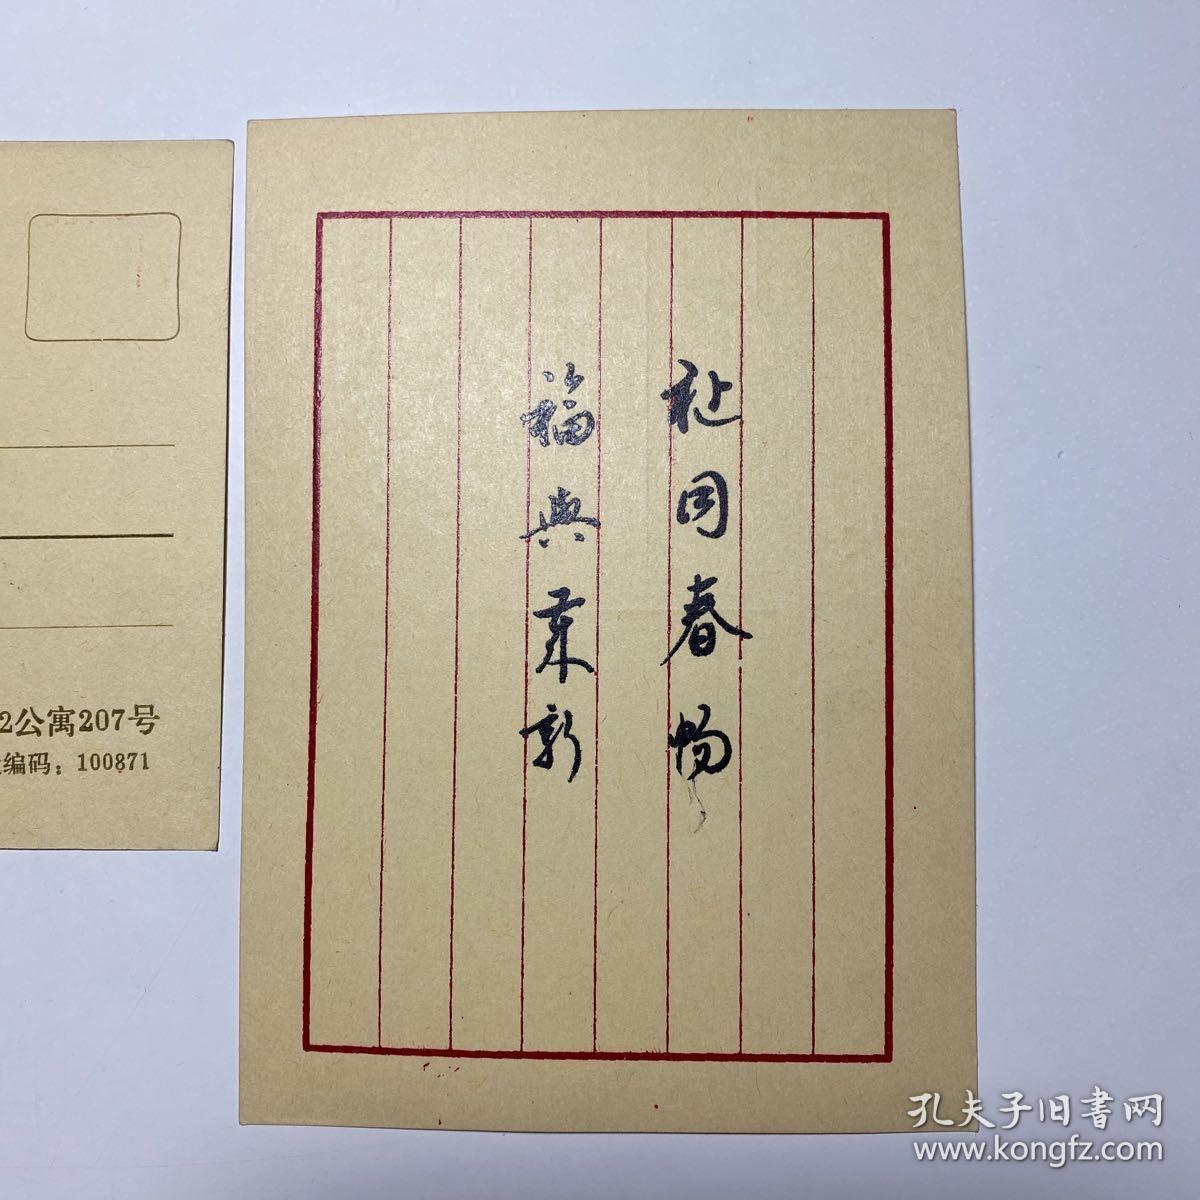 祉同春畅
福与年新
2公寓207号
编码：100871
孔夫子旧书网
www.kongfz.com